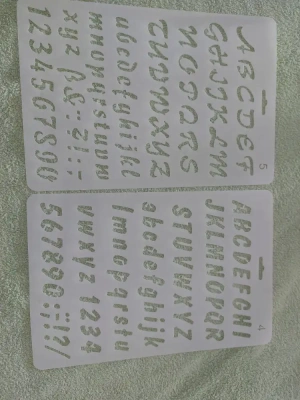 5
ABCDEF
GHIJKLM
NOPQRS
TUVWXYZ
abcdefghijkl
mnopqrstuvw
xyz ß&:;!::
1234567890
4
ABCDEFGHI
JKLMNOPQR
STUVWXYZ
abcdefghijk
lmnopqrstu
vwxyz 1234
567890:;!?/